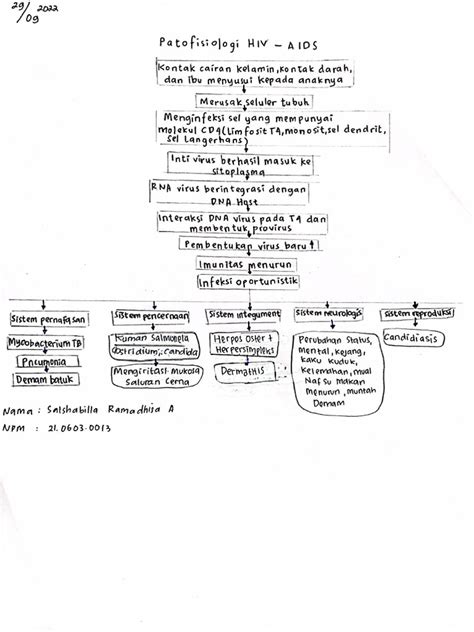 29/09 2022
Patofisiologi HIV - AIDS
Kontak cairan kelamin, kontak darah,
dan ibu menyusui kepada anaknya
Merusak seluler tubuh
Menginfeksi sel yang mempunyai
molekul CD4 (Limfosit T4, monosit, sel dendrit,
sel Langerhans)
Inti virus berhasil masuk ke
sitoplasma
RNA virus berintegrasi dengan
DNA Host
Interaksi DNA virus pada T4 dan
membentuk provirus
Pembentukan virus baru ↑
Imunitas menurun
Infeksi oportunistik
Sistem pernafasan
Mycobacterium TB
Pneumonia
Demam batuk
Sistem pencernaan
Kuman Salmonela
Clostridium, candida
Mengiritasi Mukosa
Saluran Cerna
Sistem integument
Herpes Oster +
Herpersimpleks
Dermatitis
Sistem neurologis
Perubahan Status,
Mental, kejang,
kaku kuduk,
Kelemahan, mual
Nafsu makan
menurun, muntah
Demam
Sistem reproduksi
Candidiasis
Nama : Salshabilla Ramadhita A
NPM : 21.0603.0013